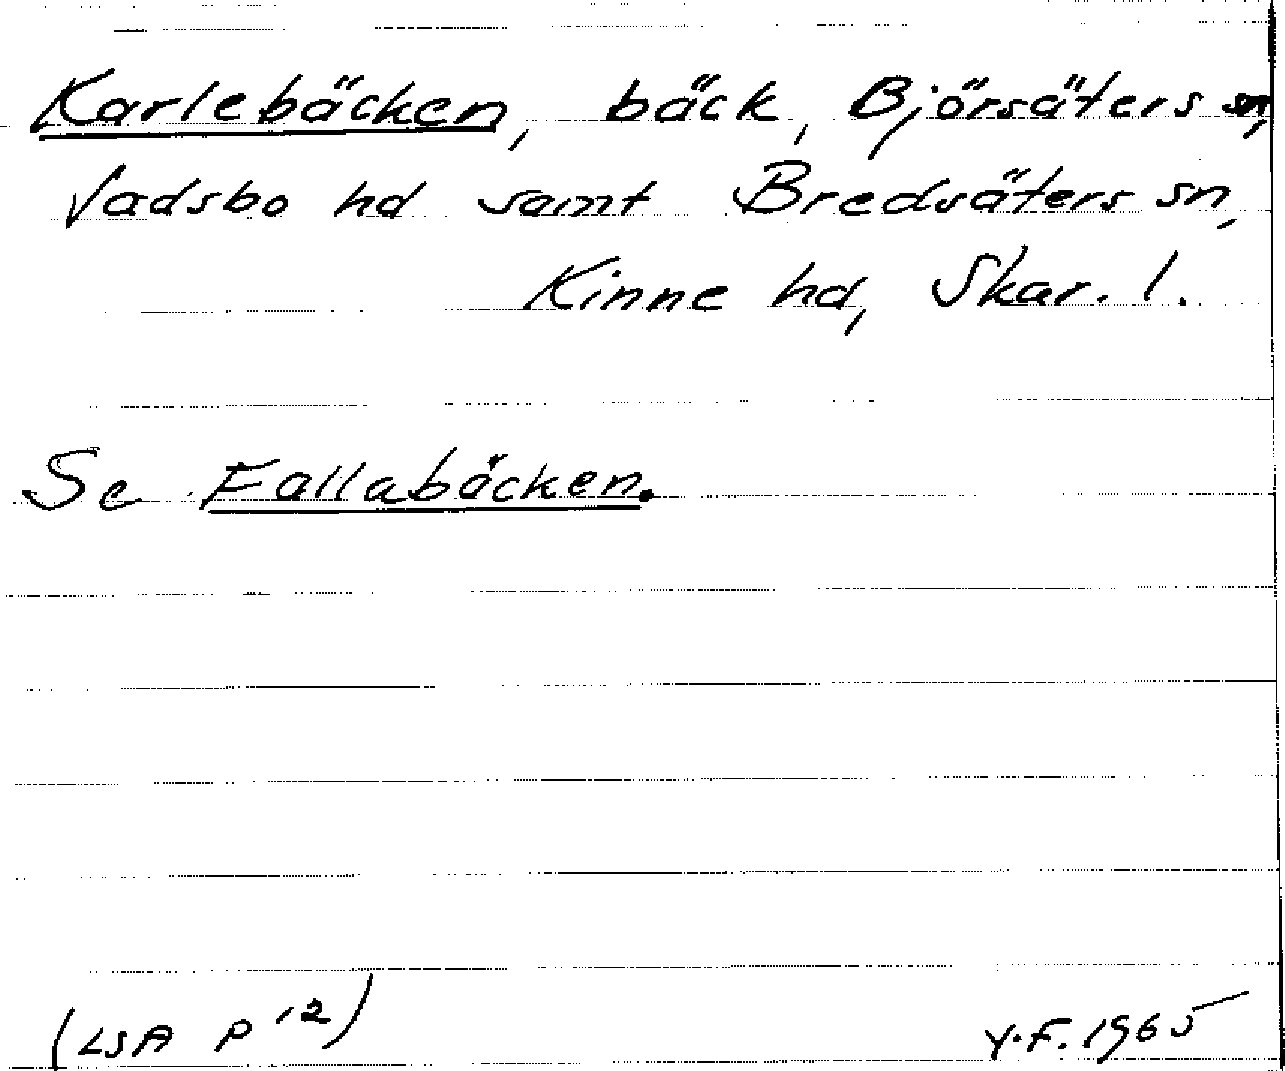 Karlebäcken, bäck, Björsäters sn,
Vadsbo hd samt Bredsäters sn,
Kinne hd, Skar. l.
Se Fallabäcken.
(LSA P 12) Y.F. 1965